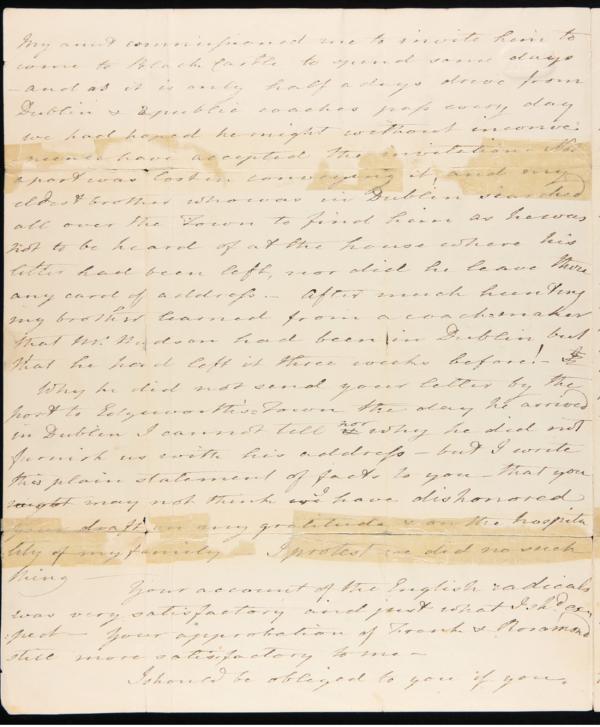 My aunt commissioned me to invite him to
come to Black Castle to spend some days
- and as it is only half a days drive from
Dublin & public coaches pass every day
we had hoped he might without inconve-
nience have accepted the invitation.
a post was lost in conveying it and my
eldest brother who was in Dublin searched
all over the Town to find him as he was
not to be heard of at the house where his
letter had been left, nor did he leave there
any card of address - After much hunting
my brother learned from a coachmaker
that Mr. had been in Dublin but
that he had left it three weeks before! -
Why he did not send your letter by the
post to Edgeworth's=Town the day he arrived
in Dublin I cannot tell nor why he did not
furnish us with his address - but I write
this plain statement of facts to you - that you
may not think I have dishonored
your draft on my gratitude & on the hospita
lity of my family I protest we did no such
thing -
Your account of the English radicals
was very satisfactory and just what I shd. ex-
pect - Your approbation of Frank & Rosamond
still more satisfactory to me -
I should be obliged to you if you